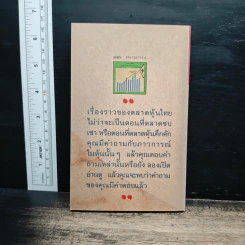 เรื่องราวของตลาดหุ้นไทย
ไม่ว่าจะเป็นตอนที่ตลาดซบ
เซา หรือตอนที่ตลาดหุ้นคึกคัก
คุณมีคำถามกับภาวการณ์
ในหุ้นนั้น ๆ แล้วคุณตอบคำ
ถามเหล่านั้นหรือยัง ลองเปิด
อ่านดู แล้วคุณจะพบว่าคำถาม
ของคุณมีคำตอบแล้ว